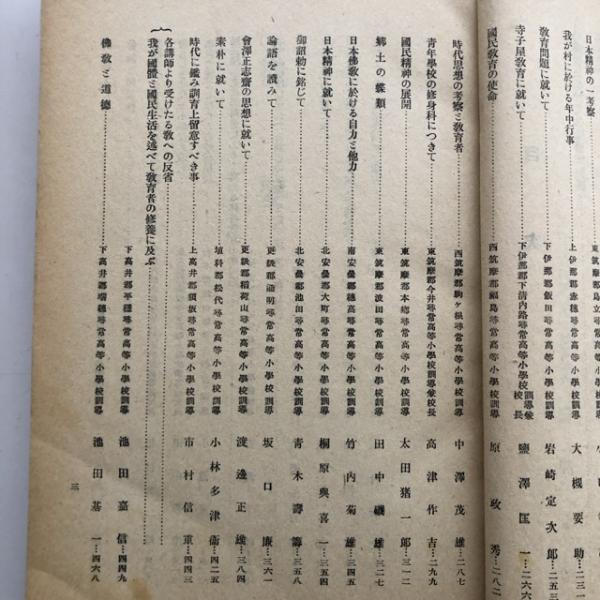 日本精神の一考察
我が村に於ける年中行事……上伊那郡赤穂尋常高等小學校訓導 大槻要助…二三一
敎育問題に就いて……下伊那郡飯田尋常高等小學校訓導 岩崎定次郎…二五〇
寺子屋敎育に就いて……下伊那郡下淸內路尋常高等小學校訓導兼校長 鹽澤匡一…二六六
國民敎育の使命……西筑摩郡福島尋常高等小學校訓導 原政秀…二八二
時代思想の考察と敎育者……西筑摩郡駒ヶ根尋常高等小學校訓導 中澤茂雄…二八七
靑年學校の修身科につきて……東筑摩郡今井尋常高等小學校訓導兼校長 高津作吉…二九九
國民精神の展開……東筑摩郡本鄕尋常高等小學校訓導 太田猪一郎…三一二
鄕土の蝶類……東筑摩郡波田尋常高等小學校訓導 田中磯雄…三二七
日本佛敎に於ける自力と他力……南安曇郡穗高尋常高等小學校訓導 竹內菊雄…三四五
日本精神に就いて……北安曇郡大町尋常高等小學校訓導 桐原與喜一…三五四
御詔勅に銘じて……北安曇郡池田尋常高等小學校訓導 靑木壽籌…三五八
論語を讀みて……更級郡 尋常高等小學校訓導 坂口廉…三六一
會澤正志齋の思想に就いて……更級郡稻荷山尋常高等小學校訓導 渡邊正雄…三八四
素朴に就いて……埴科郡松代尋常高等小學校訓導 小林多津衞…四二五
時代に鑑み訓育上留意すべき事……上高井郡須坂尋常高等小學校訓導 市村信重…四四三
各講師より受けたる敎への反省
我が國體と國民生活を述べて敎育者の修養に及ぶ……下高井郡平穩尋常高等小學校訓導 池田嘉信…四四九
佛敎と道德……下高井郡瑞穗尋常高等小學校訓導 池田基一…四六八
三